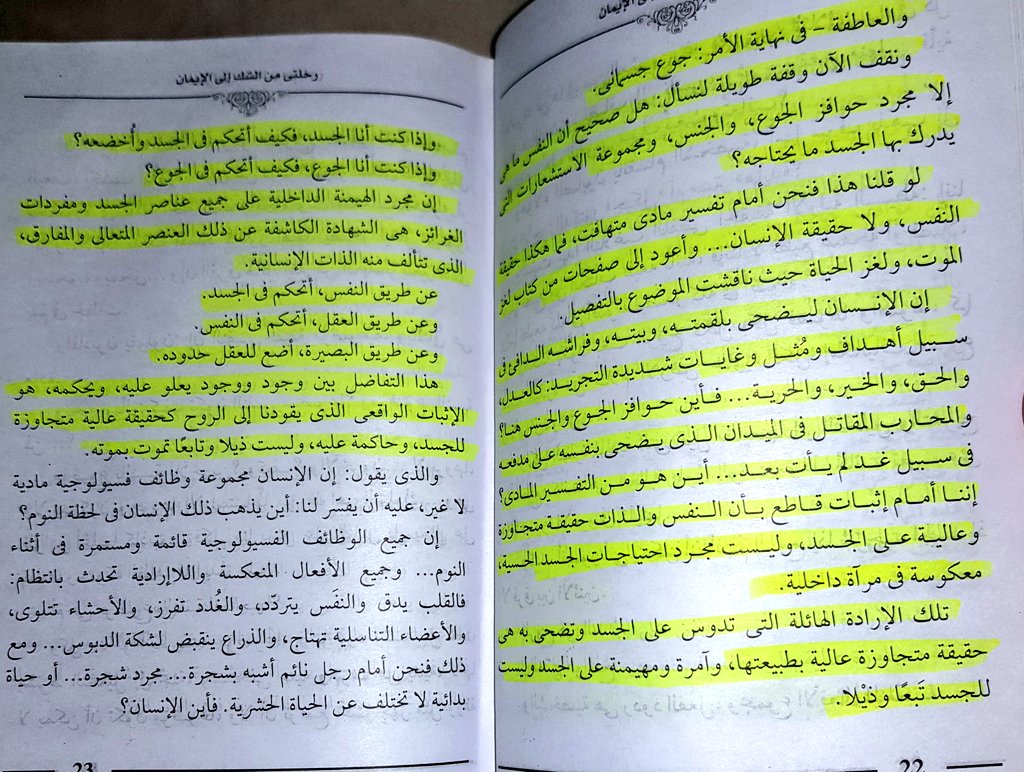 والعاطفة – فى نهاية الأمر: جوع جسمانى.
ونقف الآن وقفة طويلة لنسأل: هل صحيح أن النفس ما هى
إلا مجرد حوافز الجوع، والجنس، ومجموعة الاستشعارات التى
يدرك بها الجسد ما يحتاجه؟
لو قلنا هذا فنحن أمام تفسير مادى متهافت، فما هكذا حقيقة
النفس، ولا حقيقة الإنسان... وأعود إلى صفحات من كتاب لغز
الموت، ولغز الحياة حيث ناقشت الموضوع بالتفصيل.
إن الإنسان ليضحى بلقمته، وبيته، وفراشه الدافئ فى
سبيل أهداف ومُثل وغايات شديدة التجريد: كالعدل،
والحق، والخير، والحرية... فأين حوافز الجوع والجنس هنا؟
والمحارب المقاتل فى الميدان الذى يضحى بنفسه على مدفعه
فى سبيل غد لم يأت بعد... أين هو من التفسير المادى؟
إننا أمام إثبات قاطع بأن النفس والذات حقيقة متجاوزة
وعالية على الجسد، وليست مجرد احتياجات الجسد الحسية،
معكوسة فى مرآة داخلية.
تلك الإرادة الهائلة التى تدوس على الجسد وتضحى به هى
حقيقة متجاوزة عالية بطبيعتها، وآمرة ومهيمنة على الجسد وليست
للجسد تَبعًا وذَيْلا.
22
رحلتى من الشك إلى الإيمان
وإذا كنت أنا الجسد، فكيف أتحكم فى الجسد وأُخضعه؟
وإذا كنت أنا الجوع، فكيف أتحكم فى الجوع؟
إن مجرد الهيمنة الداخلية على جميع عناصر الجسد ومفردات
الغرائز، هى الشهادة الكاشفة عن ذلك العنصر المتعالى والمفارق،
الذى تتألف منه الذات الإنسانية.
عن طريق النفس، أتحكم فى الجسد.
وعن طريق العقل، أتحكم فى النفس.
وعن طريق البصيرة، أضع للعقل حدوده.
هذا التفاضل بين وجود ووجود يعلو عليه، ويحكمه، هو
الإثبات الواقعى الذى يقودنا إلى الروح كحقيقة عالية متجاوزة
للجسد، وحاكمة عليه، وليست ذيلا وتابعًا تموت بموته.
والذى يقول: إن الإنسان مجموعة وظائف فسيولوجية مادية
لا غير، عليه أن يفسّر لنا: أين يذهب ذلك الإنسان فى لحظة النوم؟
إن جميع الوظائف الفسيولوجية قائمة ومستمرة فى أثناء
النوم... وجميع الأفعال المنعكسة واللاإرادية تحدث بانتظام:
فالقلب يدق والنفَس يتردّد، والغُدد تفرز، والأحشاء تتلوى،
والأعضاء التناسلية تهتاج، والذراع ينقبض لشكة الدبوس... ومع
ذلك فنحن أمام رجل نائم أشبه بشجرة... مجرد شجرة... أو حياة
بدائية لا تختلف عن الحياة الحشرية. فأين الإنسان؟
23